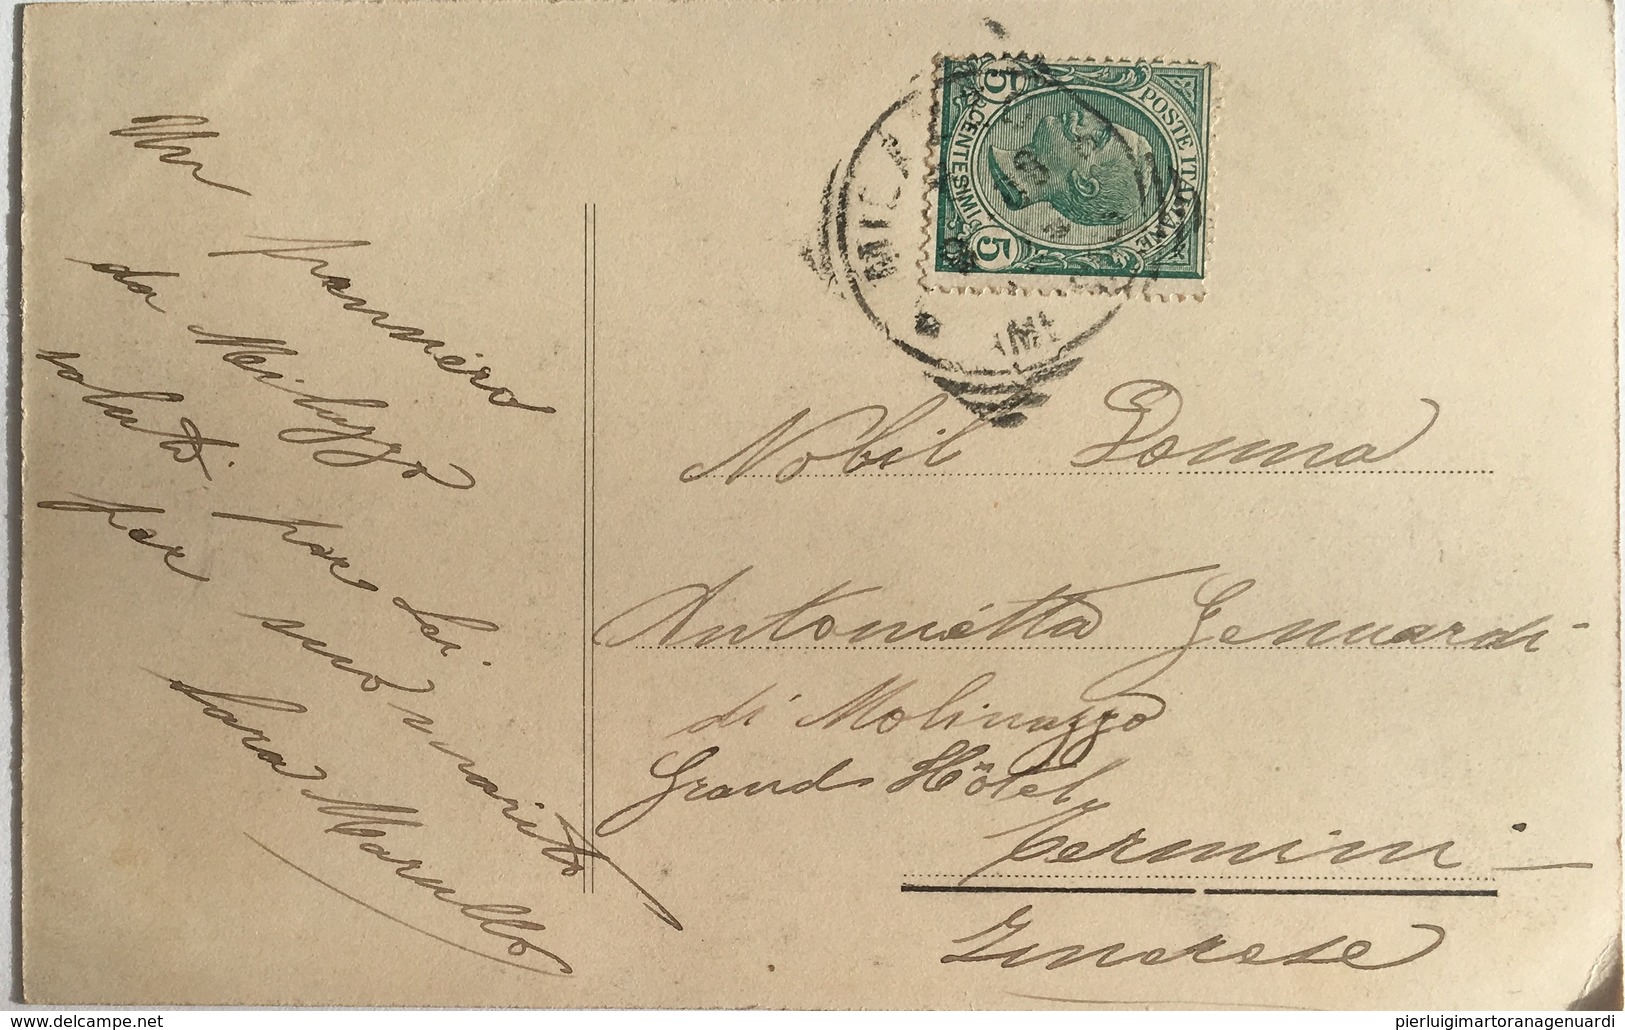 Un pensiero
da Milazzo
saluti. per Lei.
per suo marito
Sara Marullo
POSTE ITALIANE
5 CENTESIMI 5
MILAZZO
Nobil Donna
Antonietta Genuardi
di Molinazzo
Grand Hôtel
Termini-
Imerese
delcampe.net
pierluigimartoranagenuardi